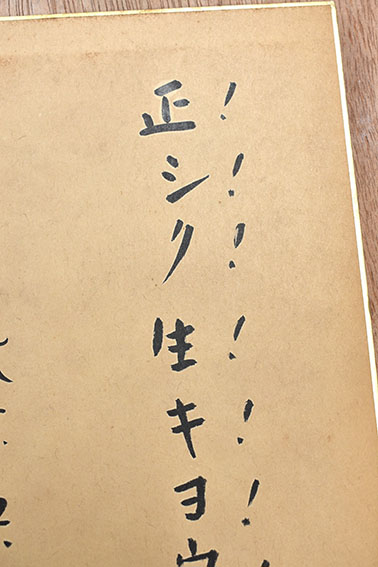 正シク生キヨウ
！！！！！！！